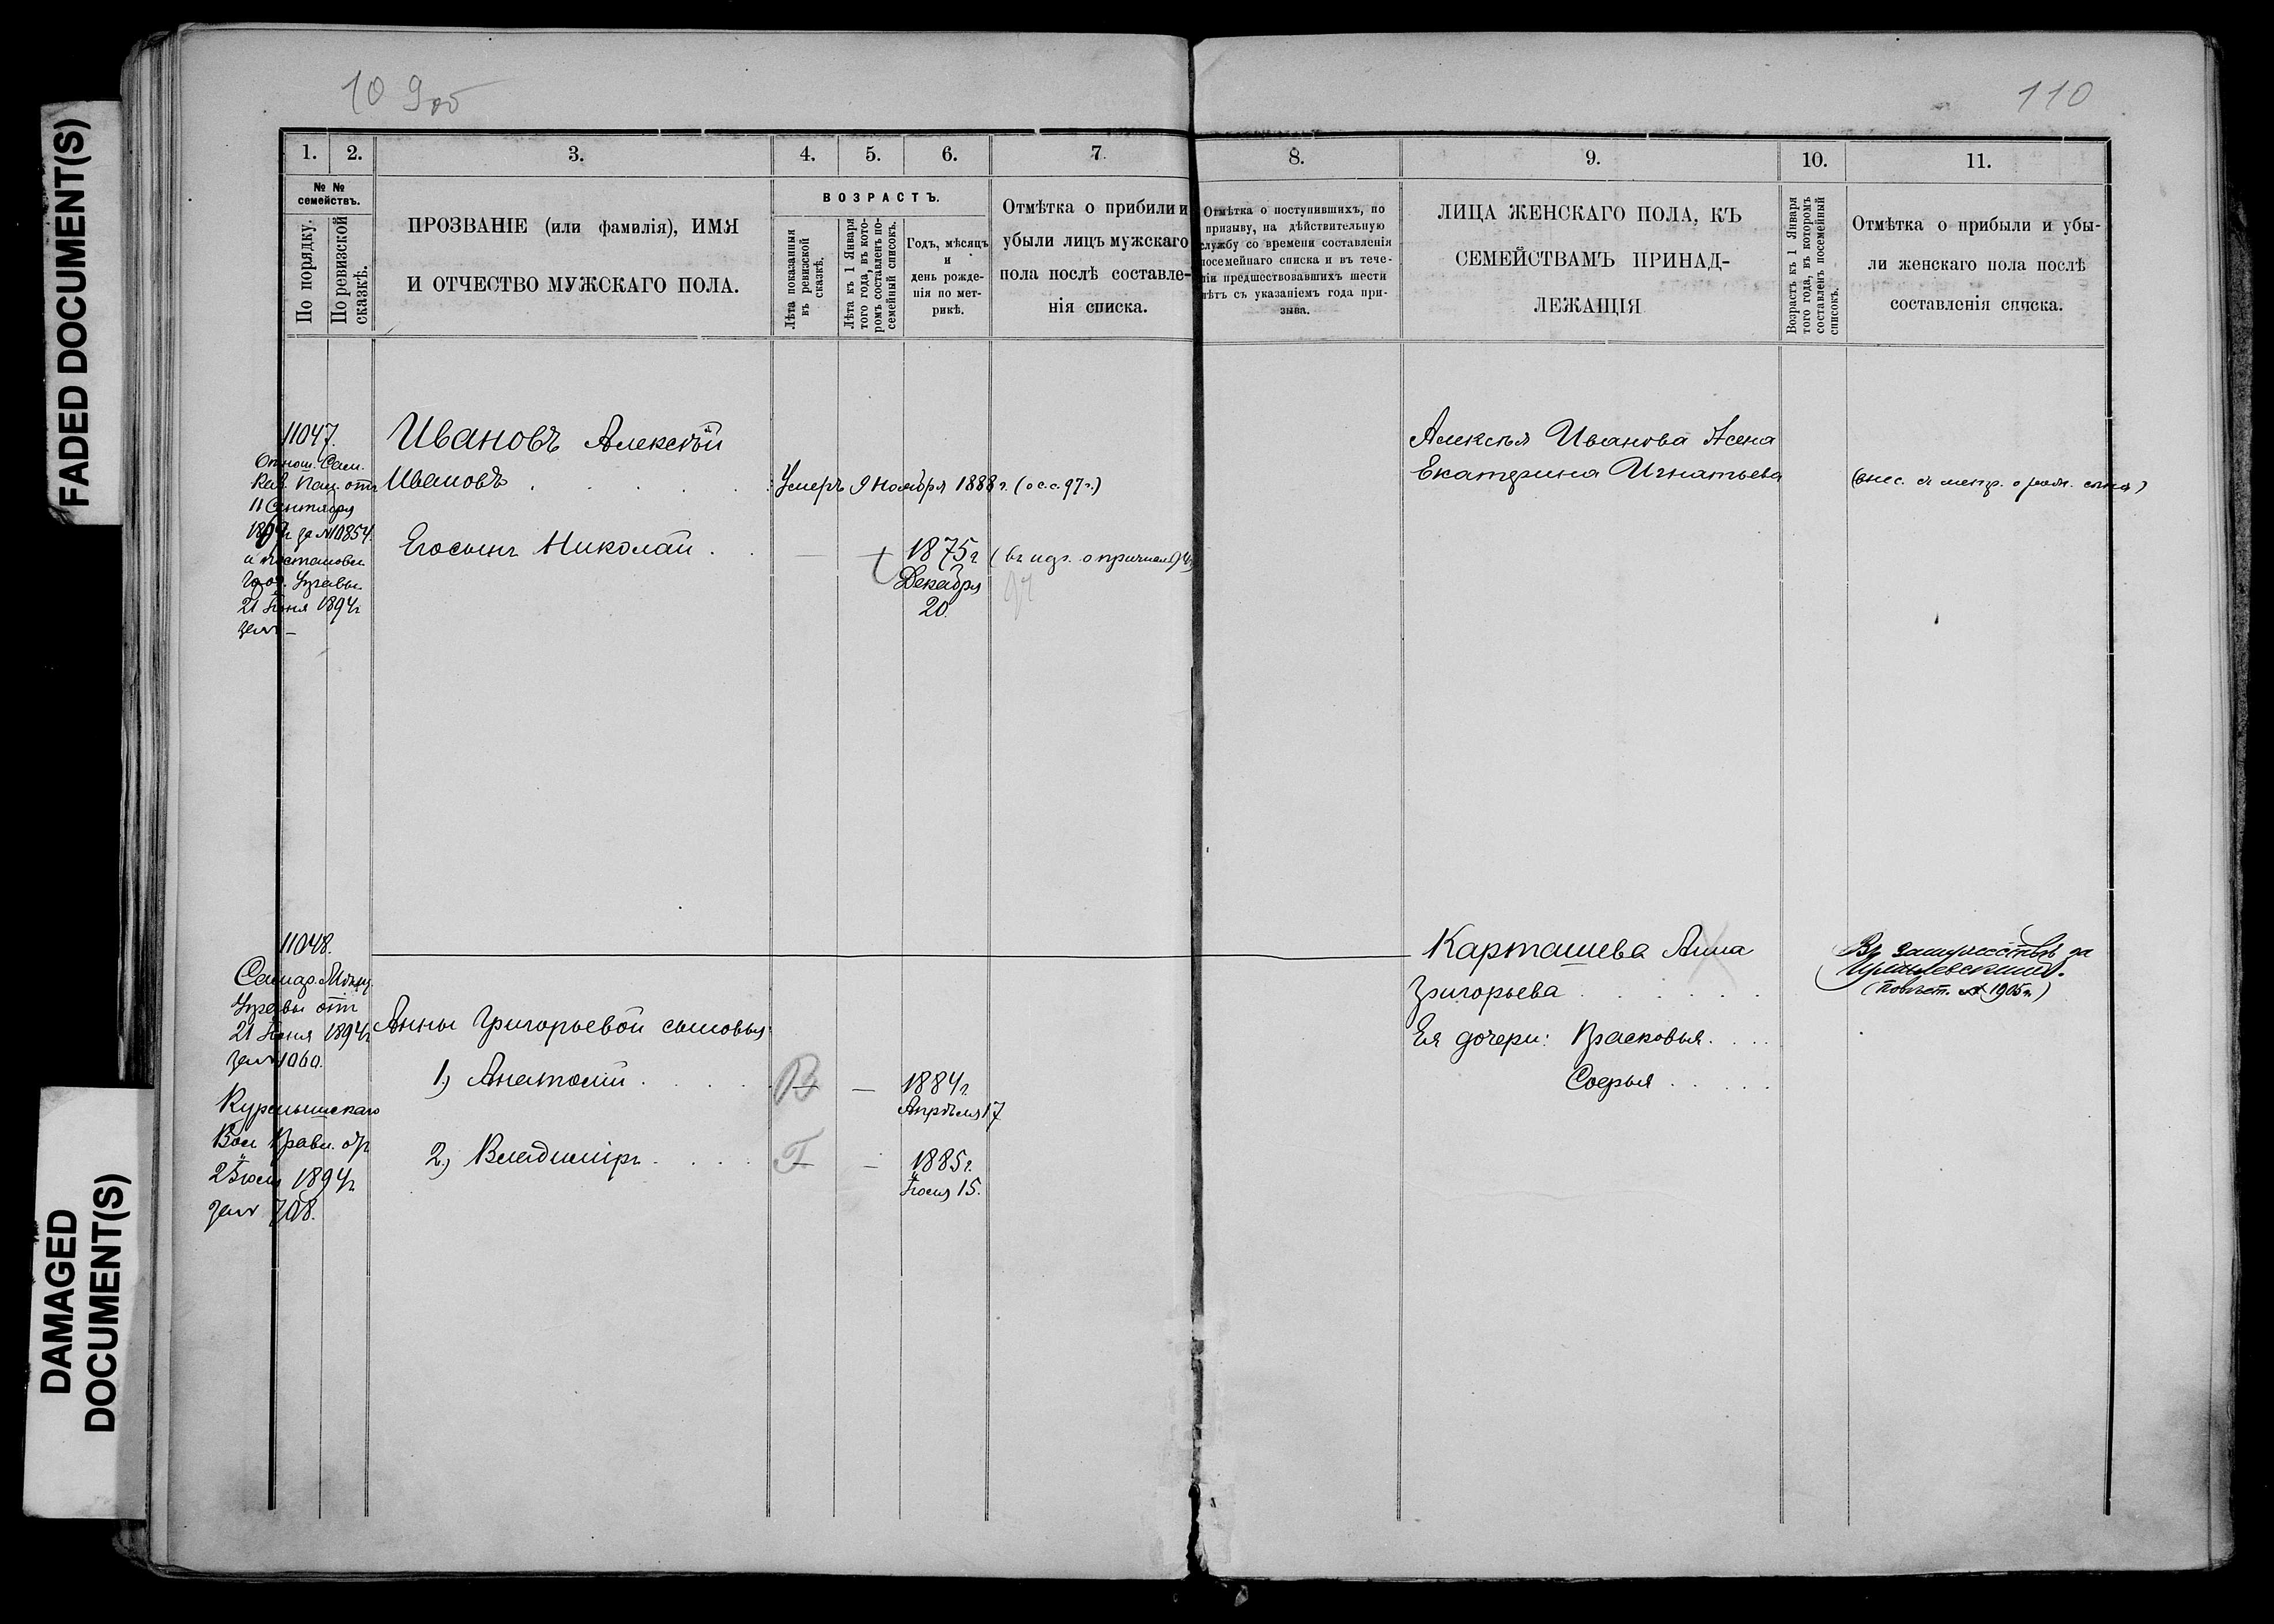 FADED DOCUMENT(S)
DAMAGED
DOCUMENT(S)
109об
110
1.
2.
3.
4.
5.
6.
7.
8.
9.
10.
11.
№ №
семействъ.
По порядку.
По ревизской
сказкѣ.
ПРОЗВАНІЕ (или фамилія), ИМЯ
И ОТЧЕСТВО МУЖСКАГО ПОЛА.
ВОЗРАСТЪ.
Лѣта показанныя
въ ревизской
сказкѣ.
Лѣта къ 1 Января
того года, въ кото-
ромъ составленъ по-
семейный списокъ.
Годъ, мѣсяцъ
и
день рожде-
нія по мет-
рикѣ.
Отмѣтка о прибыли и
убыли лицъ мужскаго
пола послѣ составле-
нія списка.
Отмѣтка о поступившихъ, по
призыву, на дѣйствительную
службу со времени составленія
посемейнаго списка и въ тече-
ніи предшествовавшихъ шести
лѣтъ съ указаніемъ года при-
зыва.
ЛИЦА ЖЕНСКАГО ПОЛА, КЪ
СЕМЕЙСТВАМЪ ПРИНАД-
ЛЕЖАЩІЯ
Возрастъ къ 1 Января
того года, въ которомъ
составленъ посемейный
списокъ.
Отмѣтка о прибыли и убы-
ли женскаго пола послѣ
составленія списка.
11047.
Отнош. Сам.
Каз. Пал. отъ
11 Сентября
за № 10854.
и постановл.
Гор. Управы
21 Іюня 1894г
за №
Ивановъ Алексѣй
Ивановъ
Умеръ 9 Ноября 1888 г. (о с.с. 97 г.)
Его сынъ Николай
1875г
Декабря
20.
Алексѣя Иванова Жена
Екатерина Игнатьева
11048.
Самар. Мѣщ.
Управы отъ
21 Іюня 1894г
за № 1060.
Курмышскаго
Вол. Правл. отъ
1894г
за № 708.
Анны Григорьевой сыновья
1.) Анатолій
В
1884г.
Апрѣля 17
2.) Владиміръ
Г
1885г.
Іюля 15.
Карташева Анна
Григорьева
Ея дочери: Прасковья
Софья
Въ замужествѣ за
(Повѣст. 1905 г.)